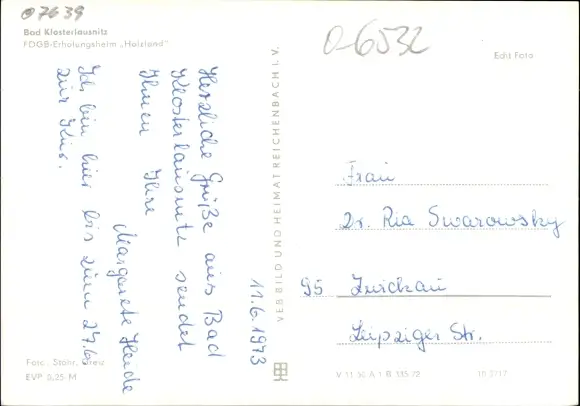 07639
Bad Klosterlausnitz
FDGB-Erholungsheim „Holzland"
06532
Edit Foto
11.6.1973
Herzliche Grüße aus Bad
Klosterlausnitz sendet
Ihnen Ihre
Margarete Heide
Ich bin hier bis zum 27.6.
zur Kur.
VEB BILD UND HEIMAT REICHENBACH I. V.
Frau
Dr. Ria Swarowsky
95 Zwickau
Leipziger Str.
Foto: Stöhr, Greiz
EVP 0,25 M
V 11 50 A 1 B 135/72